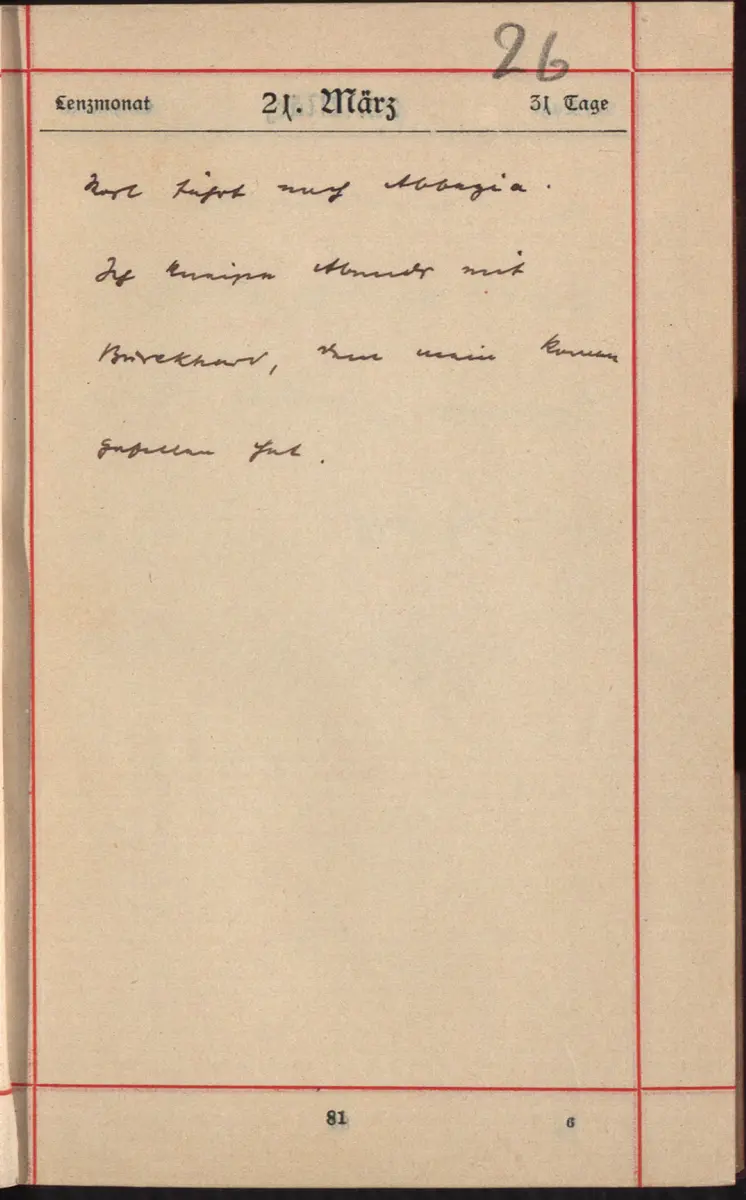 26
Lenzmonat 21. März 31 Tage
Karl fährt nach Abbazia.
Ich kneipe Abends mit
Burckhard, dem mein Roman
gefallen hat.
81 6